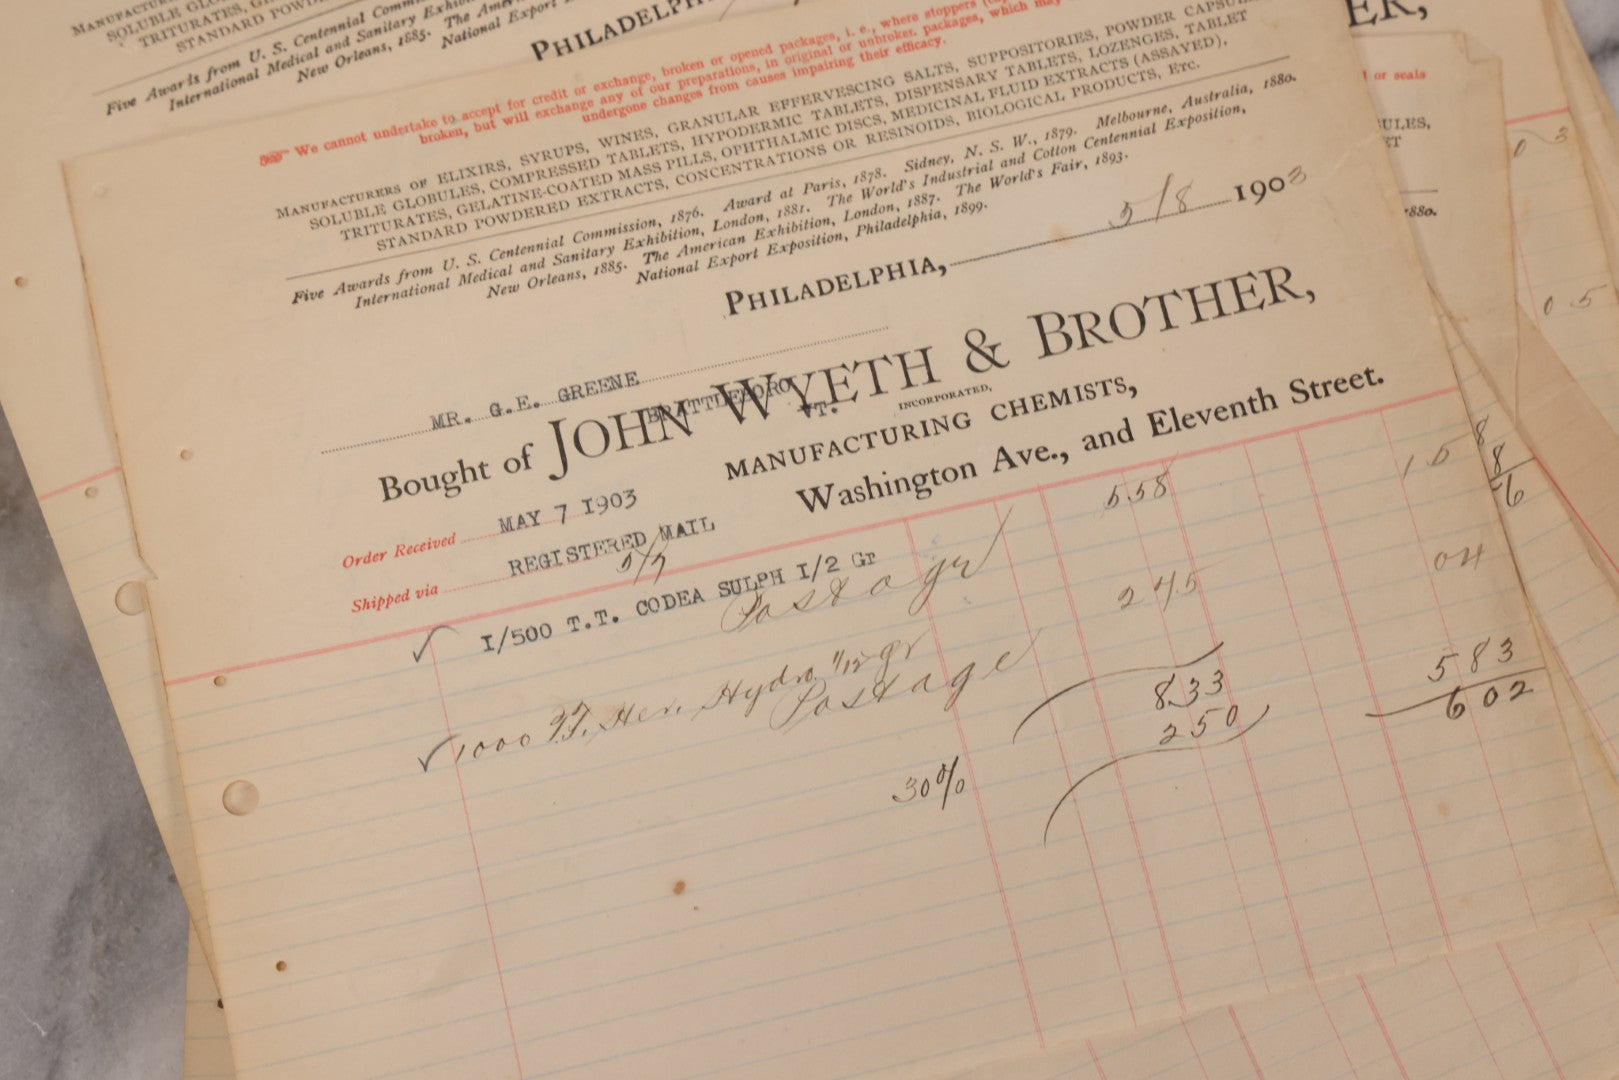 SOLUBLE GLO
TRITURATES, GE
STANDARD POWD
Five Awards from U. S. Centennial Comm
International Medical and Sanitary Exhib
New Orleans, 1885. The Amer
National Export
PHILADELPH
ER,
We cannot undertake to accept for credit or exchange, broken or opened packages, i. e., where stoppers
broken, but will exchange any of our preparations, in original or unbroken packages, which may
undergone changes from causes impairing their efficacy.
MANUFACTURERS OF ELIXIRS, SYRUPS, WINES, GRANULAR EFFERVESCING SALTS, SUPPOSITORIES, POWDER CAPSUL
SOLUBLE GLOBULES, COMPRESSED TABLETS, HYPODERMIC TABLETS, DISPENSARY TABLETS, LOZENGES, TABLET
TRITURATES, GELATINE-COATED MASS PILLS, OPHTHALMIC DISCS, MEDICINAL FLUID EXTRACTS (ASSAYED),
STANDARD POWDERED EXTRACTS, CONCENTRATIONS OR RESINOIDS, BIOLOGICAL PRODUCTS, Etc.
Five Awards from U. S. Centennial Commission, 1876. Award at Paris, 1878. Sidney, N. S. W., 1879. Melbourne, Australia, 1880.
International Medical and Sanitary Exhibition, London, 1881. The World's Industrial and Cotton Centennial Exposition,
New Orleans, 1885. The American Exhibition, London, 1887. The World's Fair, 1893.
National Export Exposition, Philadelphia, 1899.
PHILADELPHIA, 5/8 1903
MR. G.E. GREENE
BRATTLEBORO
VT.
Bought of JOHN WYETH & BROTHER,
INCORPORATED,
MANUFACTURING CHEMISTS,
Washington Ave., and Eleventh Street.
Order Received MAY 7 1903
Shipped via REGISTERED MAIL
5/7
1/500 T.T. CODEA SULPH 1/2 Gr 558
Postage 15
1000 T.T. Her. Hydro 1/12 gr 245
Postage 04
833
250
30% 583
602
or seals
ULES,
ET
1880.
0 3
0 5
8
8
6